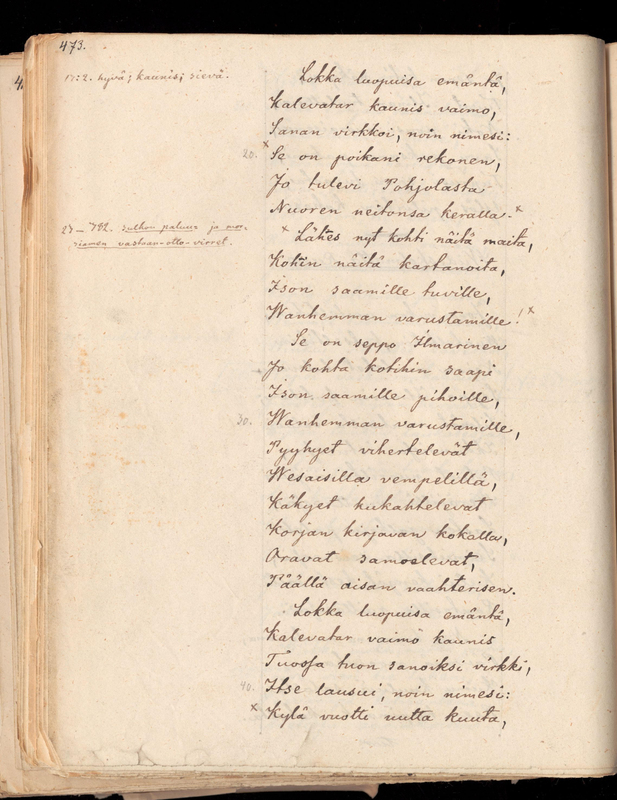 473.
17:2. hyvä; kaunis; sievä.
Lokka luopuisa emäntä,
Kalevatar kaunis vaimo,
Sanan virkkoi, noin nimesi:
20. x Se on poikani rekonen,
Jo tulevi Pohjolasta
Nuoren neitonsa keralla. x
23–792. sulhon paluu ja mor-
siamen vastaan-otto-virret.
x Lähes nyt kohti näitä maita,
Kohin näitä kartanoita,
Ison saamille tuville,
Wanhemman varustamille! x
Se on seppo Ilmarinen
Jo kohta kotihin saapi
Ison saamille pihoille,
30. Wanhemman varustamille,
Pyyhyet vihertelevät
Wesaisilla vempelillä,
Käkyet kukahtelevat
Korjan kirjavan kokalla,
Oravat samoelevat,
Päällä aisan vaahterisen.
Lokka luopuisa emäntä,
Kalevatar vaimo kaunis
Tuossa tuon sanoiksi virkki,
40. Itse lausui, noin nimesi:
x Kylä vuotti uutta kuuta,